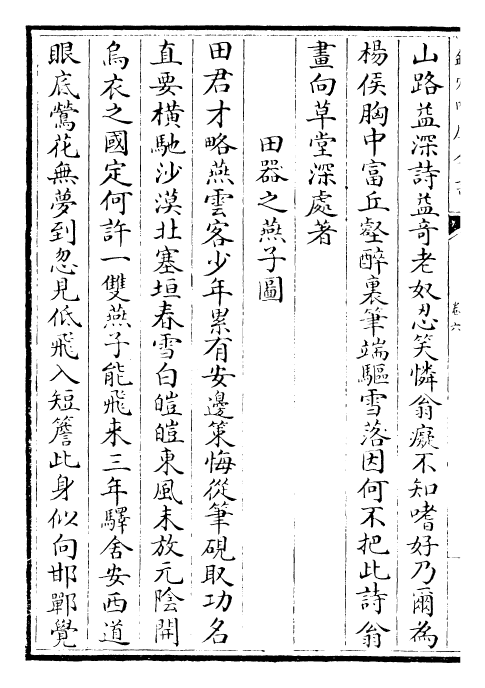 山路益深詩益竒老奴忍笑憐翁癡不知嗜好乃爾為
楊侯胸中富丘壑醉裏筆端驅雪落因何不把此詩翁
畫向草堂深處著
田器之燕子圖
田君才略燕雲客少年累有安邊策悔從筆硯取功名
直要橫馳沙漠北塞垣春雪白皚皚東風未放元陰開
烏衣之國定何許一雙燕子能飛来三年驛舍安西道
眼底鶯花無夢到忽見低飛入短簷此身似向邯鄲覺
卷六